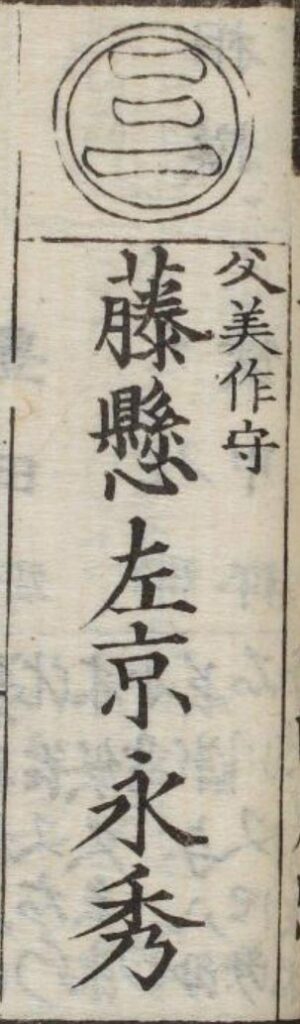 三
父美作守
藤懸左京永秀